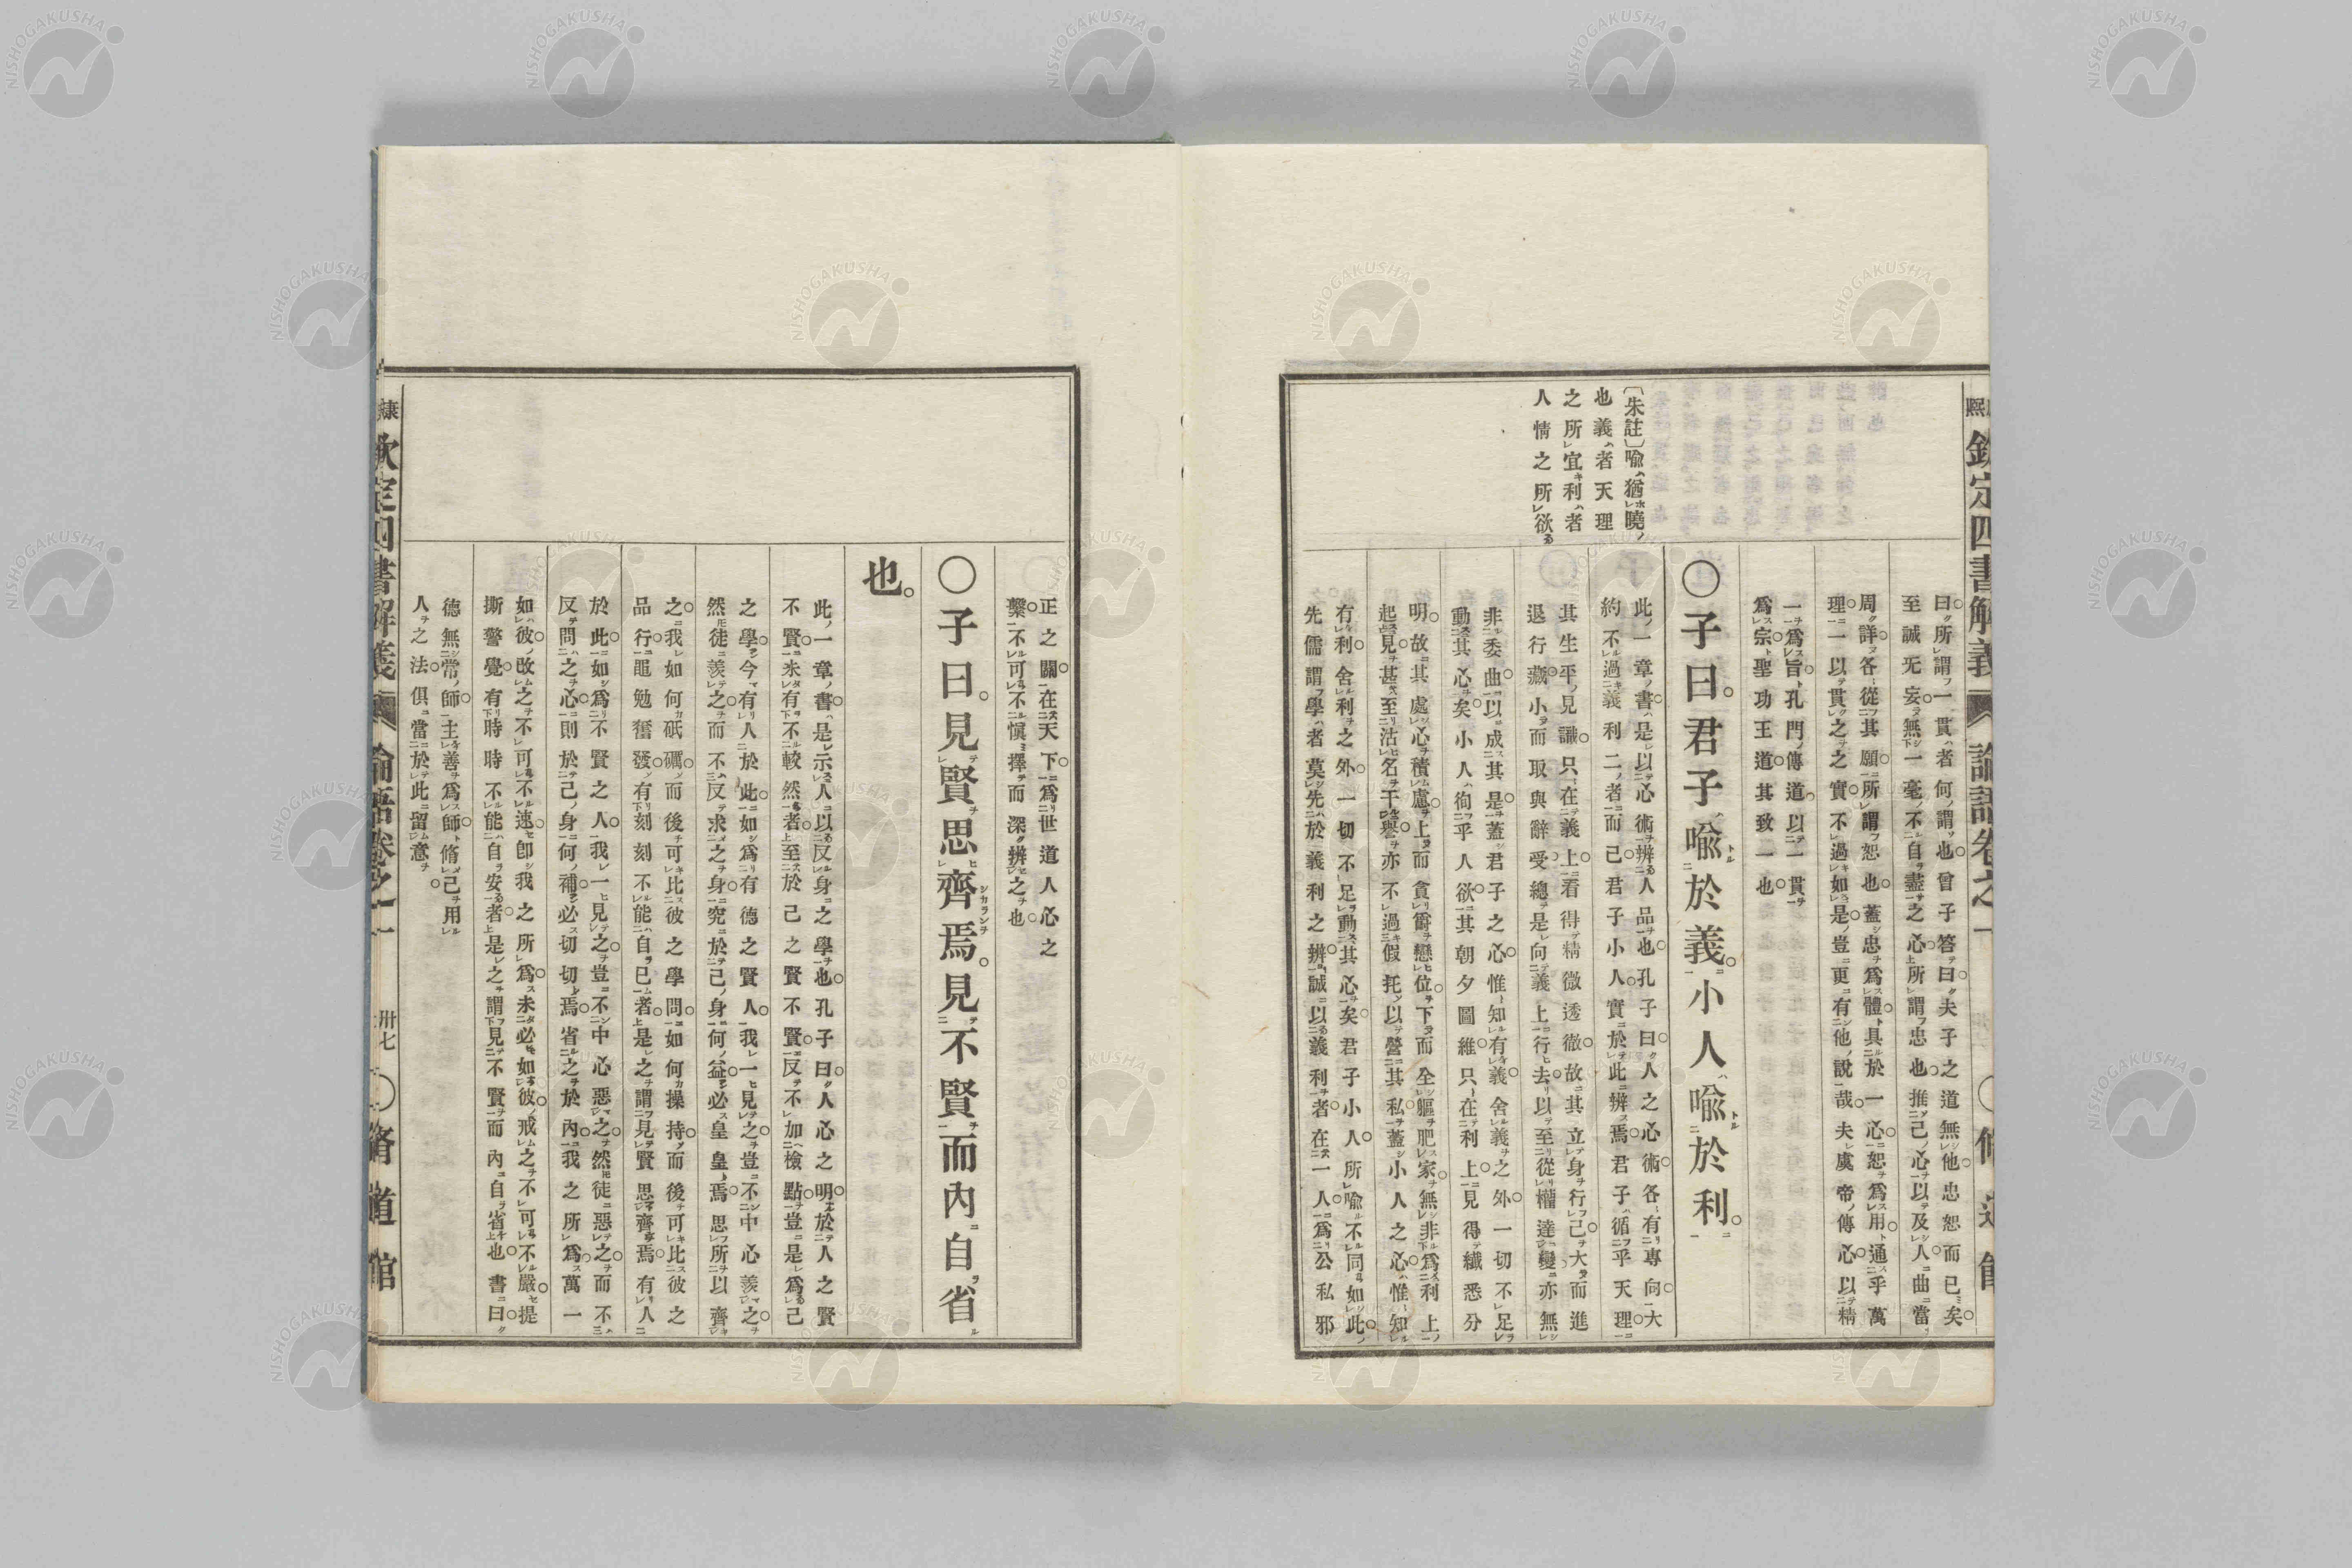 欽定四書解義 論語卷之一
曰所謂一貫者何謂也曾子答曰夫子之道無他忠恕而已矣
至誠无妄無一毫不自盡之心所謂忠也推己心以及人曲當
周詳各從其願所謂恕也蓋忠爲體具於一心恕爲用通乎萬
理一以貫之之實不過如是豈更有他說哉夫虞帝傳心以精
一爲旨孔門傳道以一貫
爲宗聖功王道其致一也
〔朱註〕喩猶曉
也義者天理
之所宜利者
人情之所欲
〇子曰。君子喩於義。小人喩於利。
此一章書是以心術辨人品也孔子曰人之心術各有專向大
約不過義利二者而已君子小人實於此辨焉君子循乎天理
其生平見識只在義上看得精微透徹故其立身行己大而進
退行藏小而取與辭受總是向義上行去以至從權達變亦無
非委曲以成其是蓋君子之心惟知有義舍義之外一切不足
動其心矣小人徇乎人欲其朝夕圖維只在利上見得纖悉分
明故其處心積慮上而貪爵戀位下而全軀肥家無非爲利上
起見甚至沽名干譽亦不過假托以營其私蓋小人之心惟知
有利舍利之外一切不足動其心矣君子小人所喩不同如此
先儒謂學者莫先於義利之辨誠以義利者在一人爲公私邪
正之關在天下爲世道人心之
繫不可不愼擇而深辨之也
〇子曰。見賢思齊焉。見不賢而內自省
也。
此一章書是示人以反身之學也孔子曰人心之明於人之賢
不賢未有不較然者至於己之賢不賢反不加檢點豈是爲己
之學今有人於此如爲有德之賢人我一見之豈不中心羨之
然徒羨之而不反求之身究於己身何益必皇皇焉思所以齊
之我如何砥礪而後可比彼之學問如何操持而後可比彼之
品行黽勉奮發有刻刻不能自已者是之謂見賢思齊焉有人
於此如爲不賢之人我一見之豈不中心惡之然徒惡之而不
反問之心則於己身何補必切切焉省之於內我之所爲萬一
如彼改之不可不速卽我之所爲未必如彼戒之不可不嚴提
撕警覺有時時不能自安者是之謂見不賢而內自省也書曰
德無常師主善爲師脩己用
人之法俱當於此留意
欽定四書解義 論語卷之一 卅七 〇脩道館
NISHOGAKUSHA